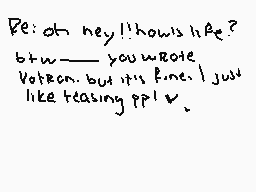 Re: oh hey!! how's life?
btw—— you wrote
Votron. but it's fine. I just
like teasing ppl